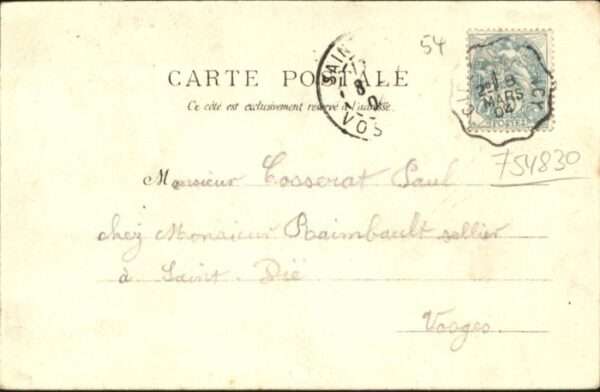 54
CARTE POSTALE
Ce côté est exclusivement réservé à l'adresse.
SAIN
8
VOS
2E 8
MARS
04
POSTES
754830
Monsieur Cosserat Paul
chez Monsieur Raimbault sellier
à Saint-Dié
Vosges